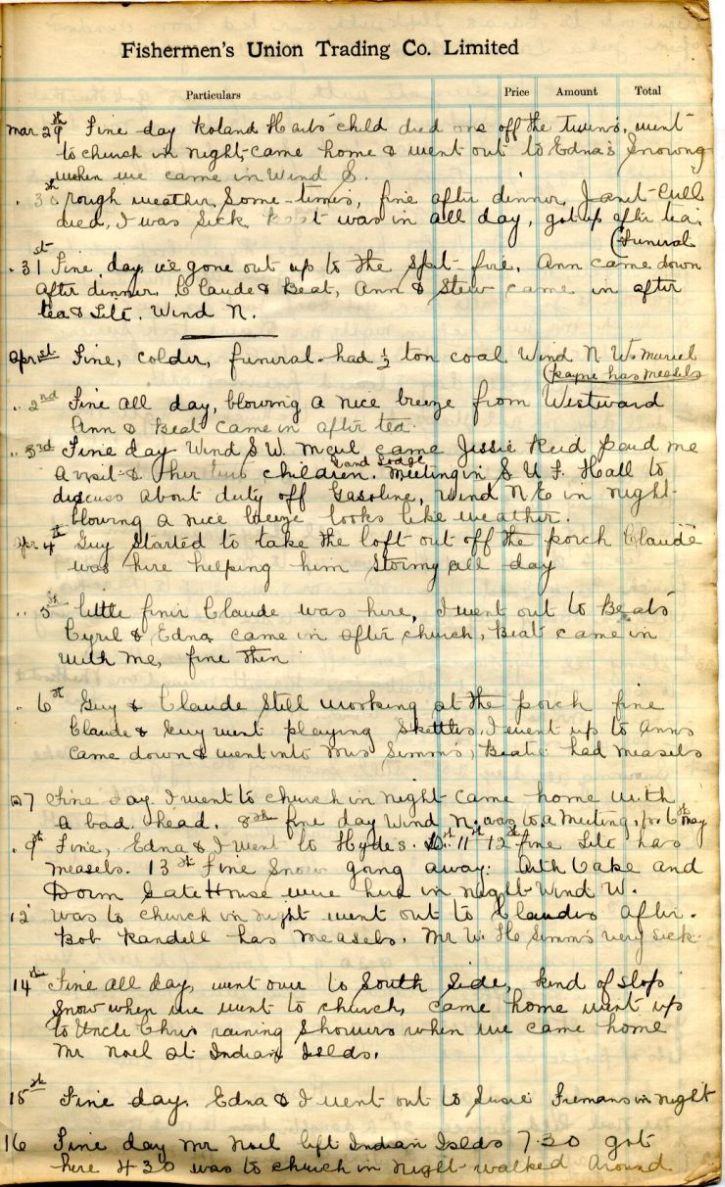 Fishermen's Union Trading Co. Limited
Particulars Price Amount Total
Mar 29th Fine day Roland child died one off the Twins, went
to church in night, came home & went out to Edna's Snowing
when we came in Wind S.
30th rough weather Some-times, fine after dinner, Janet Cull
died, I was Sick was in all day, got up after tea.
(Funeral
31st Fine day, we gone out up to the Spit-fire, Ann came down
after dinner. Claude & Beat, Ann & Stew came in after
tea & Silc. Wind N.
Apr 1st Fine, colder, funeral. had ½ ton coal Wind N W. Muriel
(Payne has measels
2nd Fine all day, blowing a nice breeze from Westward
Ann & Beat came in after tea.
3rd Fine day Wind S W. came Jessie Reid paid me
a visit & her two children. and Meeting in S U F. Hall to
discuss about duty off Gasoline, Wind N E in night-
blowing a nice breeze looks like weather.
Apr 4th Guy Started to take the loft out off the porch Claude
was here helping him Stormy all day
5st little finir Claude was here, I went out to Beats
Cyril & Edna came in after church, Beat came in
with me, fine then
6st Guy & Claude Still working at the porch fine
Claude & Guy went playing Skettles, I went up to Anns
came down & went into Mrs Simm's, Beatie had measels
7 Fine day I went to church in night came home with
a bad head. 8th fine day Wind N. was to a Meeting, for 6st May
9st Fine, Edna & I went to Hydes. 10st 11st 12st fine Silc has
measels. 13st Fine Snow going away: Ruth Cake and
Dorm GateHouse were here in night Wind W.
12 Was to church in night went out to Claudes after.
Bob Randell has measels, Mr W. He Simms very sick
14th Fine all day, went over to South Side, kind of slop
Snow when we went to church, came home went up
to Uncle Chris raining Showers when we came home
Mr Noel at Indian Islds.
15th Fine day, Edna & I went out to Susie Fremans in night
16 Fine day Mr Noel left Indian Islds 7.30 got
here 4 30 was to church in night walked around